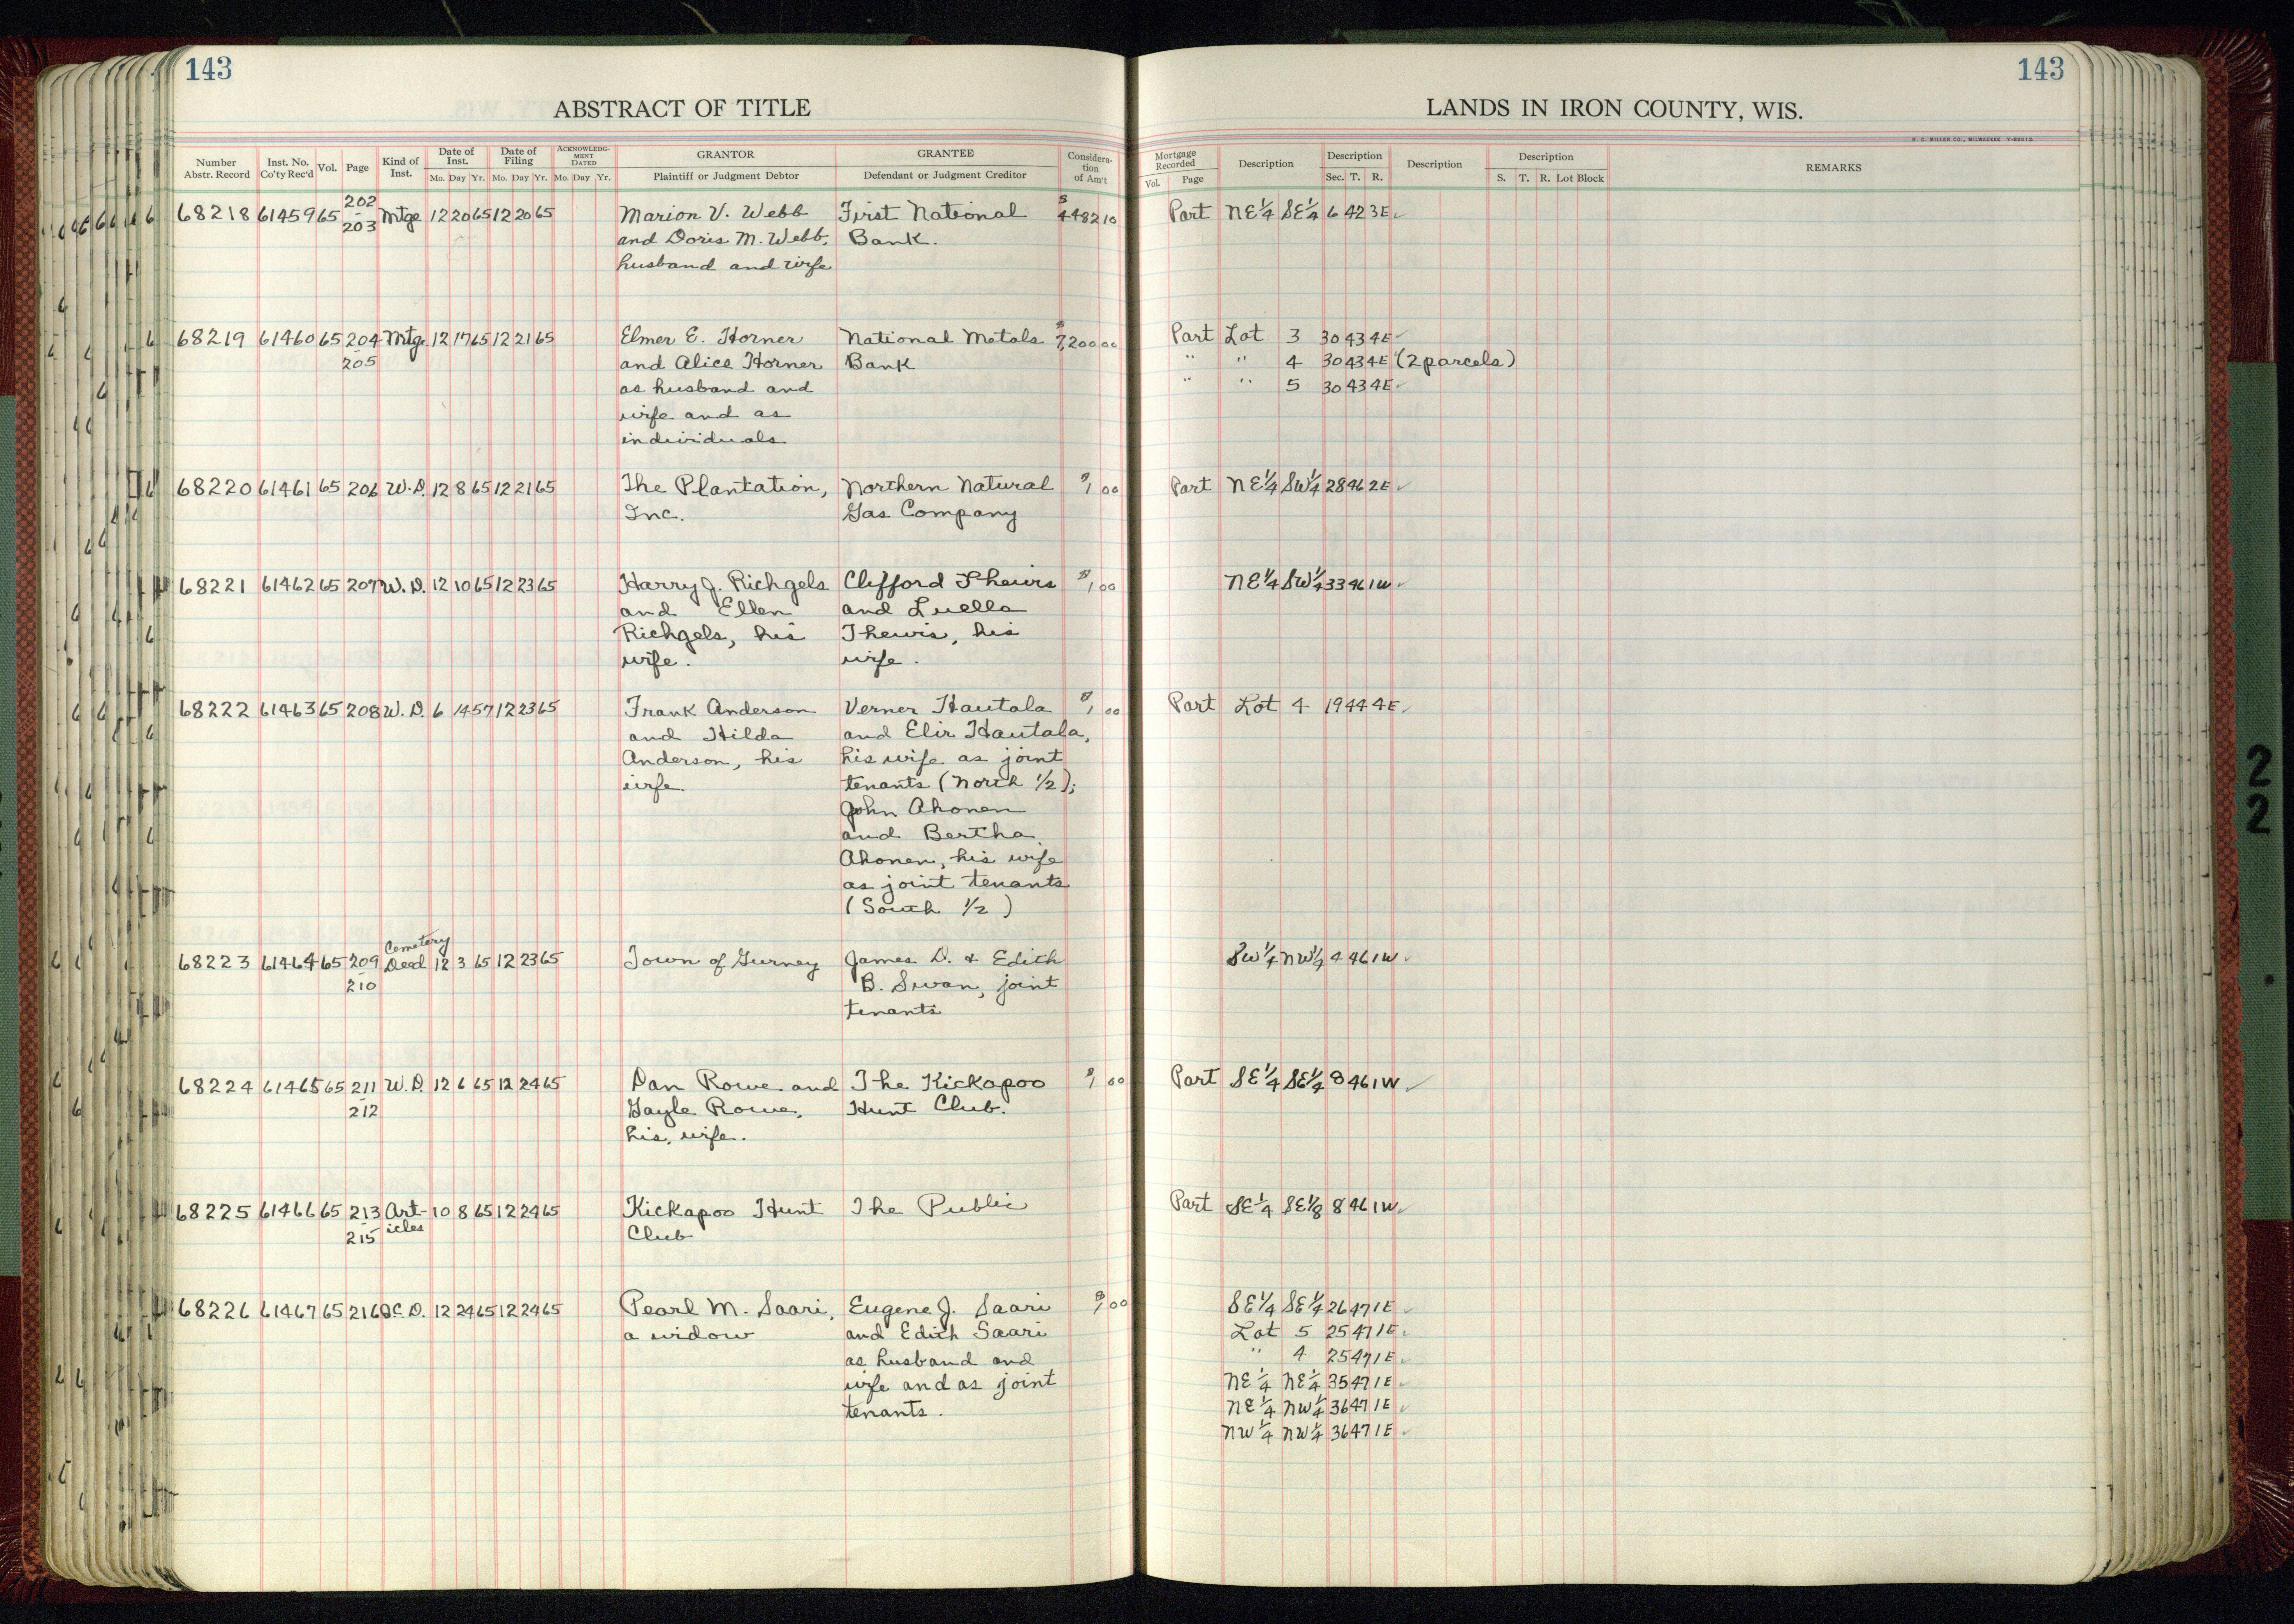 143
ABSTRACT OF TITLE
Number Abstr. Record Inst. No. Co'ty Rec'd Vol. Page Kind of Inst. Date of Inst. Mo. Day Yr. Date of Filing Mo. Day Yr. ACKNOWLEDGMENT DATED Mo. Day Yr. GRANTOR Plaintiff or Judgment Debtor GRANTEE Defendant or Judgment Creditor Consideration of Am't
68218 61459 65 202-203 Mtge 12 20 65 12 20 65 Marion V. Webb First National $4482 10
and Doris M. Webb, Bank.
husband and wife
68219 61460 65 204-205 Mtge 12 17 65 12 21 65 Elmer E. Horner National Metals $7,200 00
and Alice Horner Bank
as husband and
wife and as
individuals
68220 61461 65 206 W.D. 12 8 65 12 21 65 The Plantation, Northern Natural $1 00
Inc. Gas Company
68221 61462 65 207 W.D. 12 10 65 12 23 65 Harry J. Richgels Clifford Thewis $1 00
and Ellen and Luella
Richgels, his Thewis, his
wife. wife.
68222 61463 65 208 W.D. 6 14 57 12 23 65 Frank Anderson Verner Hautala $1 00
and Hilda and Elir Hautala,
Anderson, his his wife as joint
wife. tenants (North 1/2);
John Ahonen
and Bertha
Ahonen, his wife
as joint tenants
(South 1/2)
68223 61464 65 209-210 Cemetery Deed 12 3 65 12 23 65 Town of Gurney James D. & Edith
B. Swan, joint
tenants
68224 61465 65 211-212 W.D. 12 6 65 12 24 65 Dan Rowe and The Kickapoo $1 00
Gayle Rowe, Hunt Club.
his wife.
68225 61466 65 213-215 Articles 10 8 65 12 24 65 Kickapoo Hunt The Public
Club
68226 61467 65 216 Q.C.D. 12 24 65 12 24 65 Pearl M. Saari, Eugene J. Saari $1 00
a widow and Edith Saari
as husband and
wife and as joint
tenants.
143
LANDS IN IRON COUNTY, WIS.
H. C. MILLER CO., MILWAUKEE
Mortgage Recorded Vol. Page Description Description Sec. T. R. Description Description S. T. R. Lot Block REMARKS
Part NE 1/4 SE 1/4 6 42 3E ✓
Part Lot 3 30 43 4E ✓
" " 4 30 43 4E ✓ (2 parcels)
" " 5 30 43 4E ✓
Part NE 1/4 SW 1/4 28 46 2E ✓
NE 1/4 SW 1/4 33 46 1W ✓
Part Lot 4 19 44 4E ✓
SW 1/4 NW 1/4 4 46 1W ✓
Part SE 1/4 SE 1/4 8 46 1W ✓
Part SE 1/4 SE 1/8 8 46 1W ✓
SE 1/4 SE 1/4 26 47 1E ✓
Lot 5 25 47 1E ✓
" 4 25 47 1E ✓
NE 1/4 NE 1/4 35 47 1E ✓
NE 1/4 NW 1/4 36 47 1E ✓
NW 1/4 NW 1/4 36 47 1E ✓
2
2